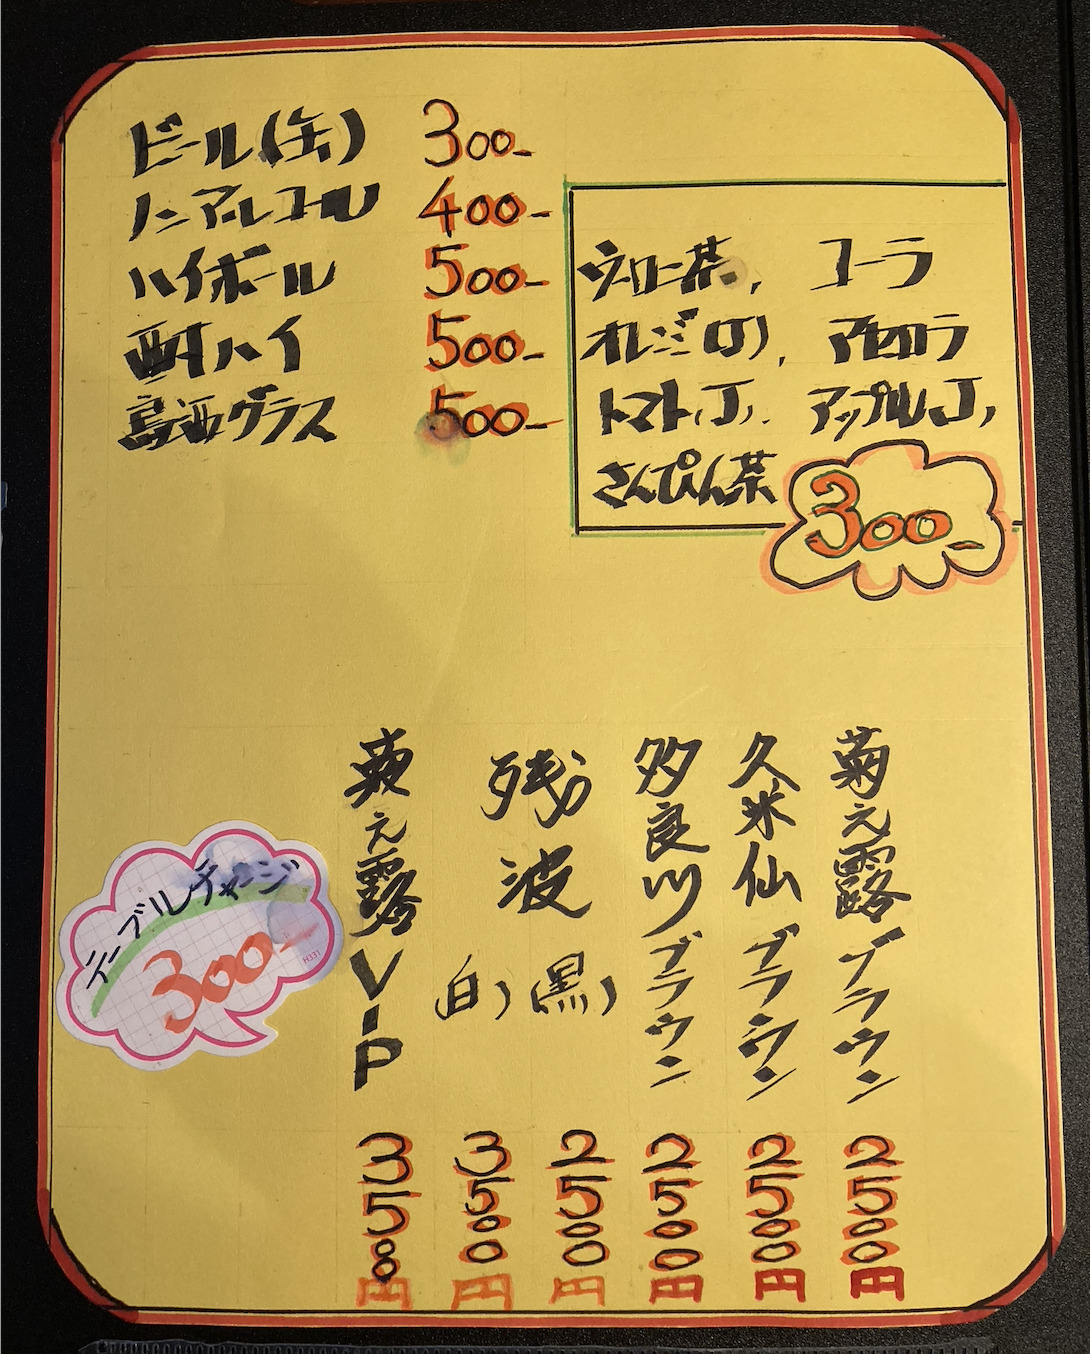 ビール(缶) 300-
ノンアルコール 400-
ハイボール 500-
酎ハイ 500-
島酒グラス 500-
ウーロン茶, コーラ
オレンジ(J), アセロラ
トマト(J), アップルJ,
さんぴん茶
300-
菊之露ブラウン 2500円
久米仙ブラウン 2500円
多良川ブラウン 2500円
残波
(黒) 2500円
白) 3500円
菊之露VIP 3500円
テーブルチャージ
300-
H331